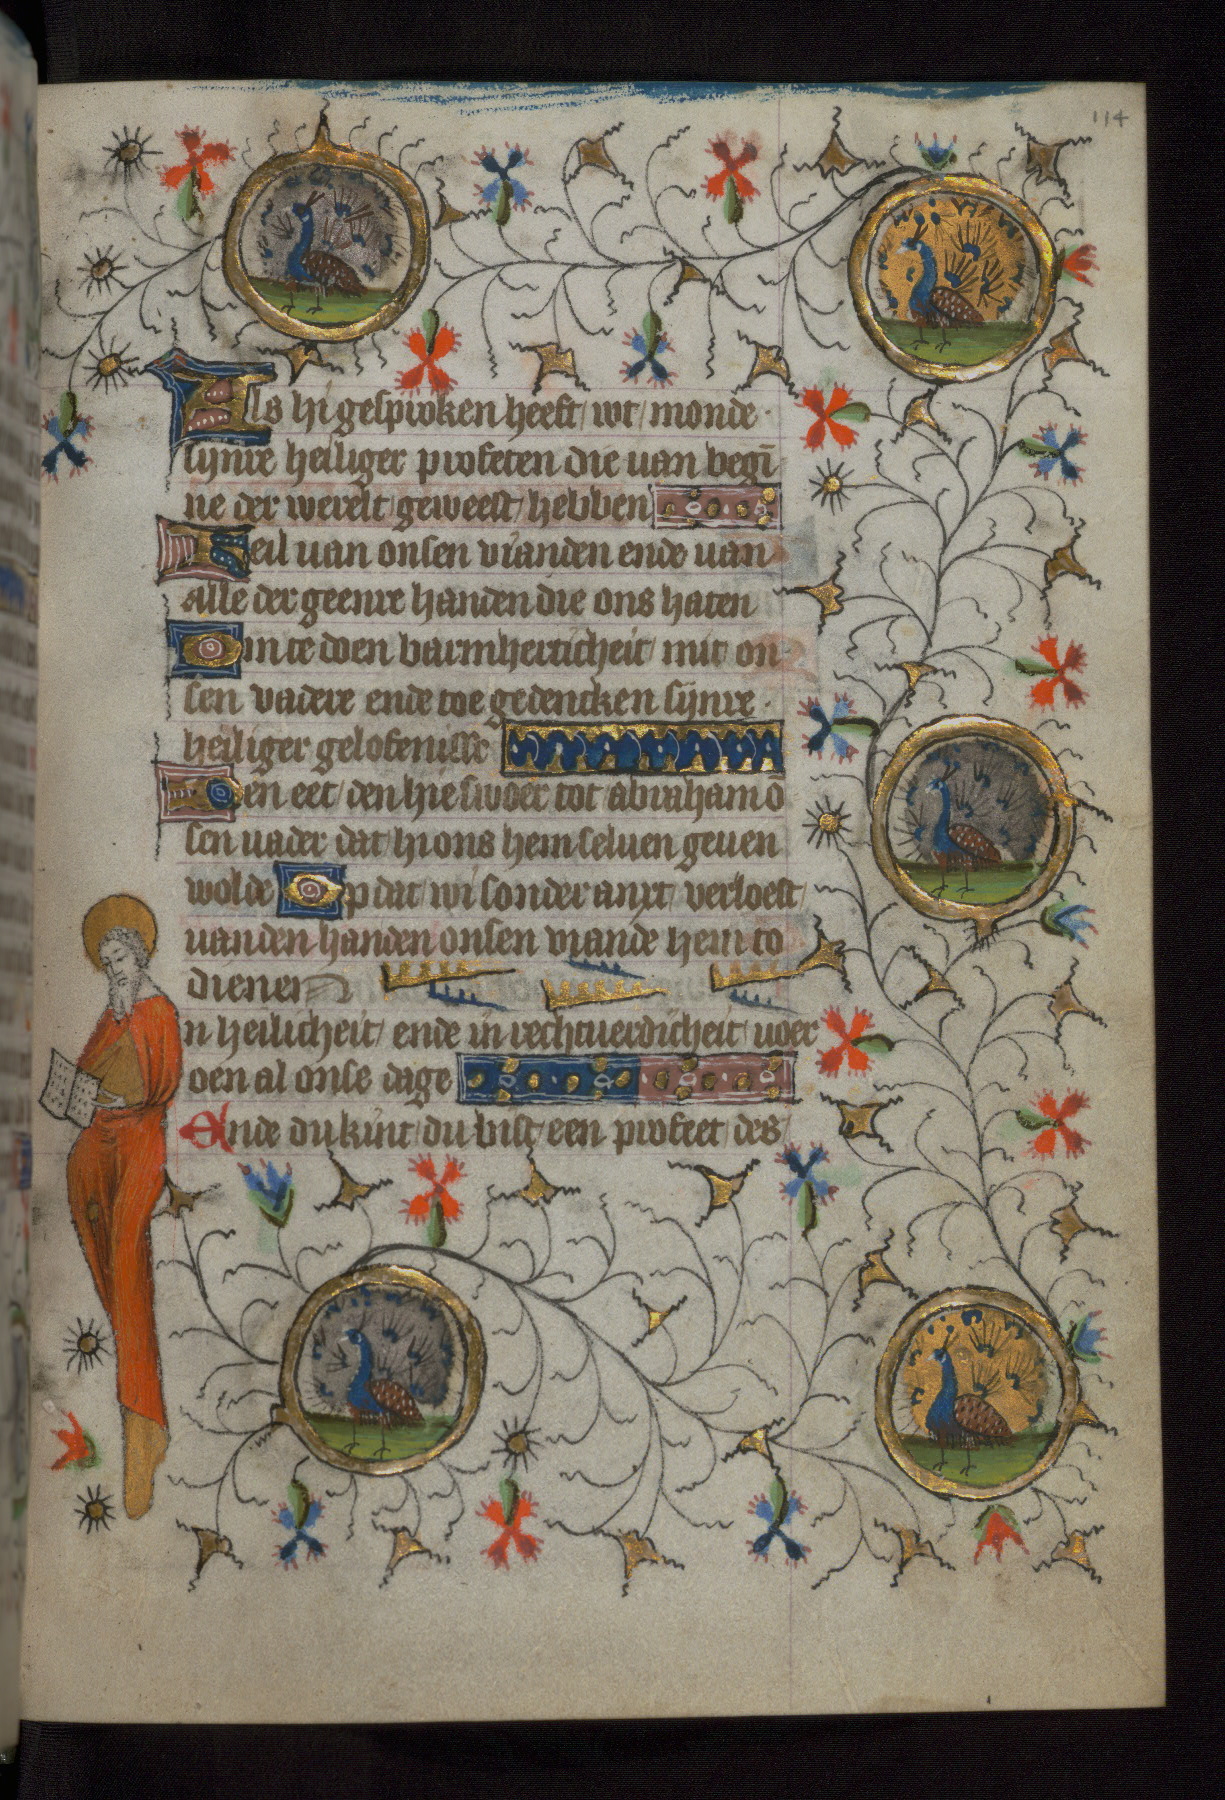 114
Als hi gesproken heeft wt monde
sijnre heiliger profeten die uan begī
ne der werelt geweest hebben
Heil uan onsen vianden ende uan
alle der geenre handen die ons haten
Om te doen barmherticheit mit on
sen vadere ende toe gedencken sijnre
heiliger gelofenisse
Den eet den hie swoer tot abraham ō
sen uader dat hi ons hem seluen geuen
wolde Op dat wi sonder anxt verloest
uanden handen onsen viande hem to
dienen
n heilicheit ende in rechtuerdicheit uoer
oen al onse dage
Ende du kint du bist een profeet des